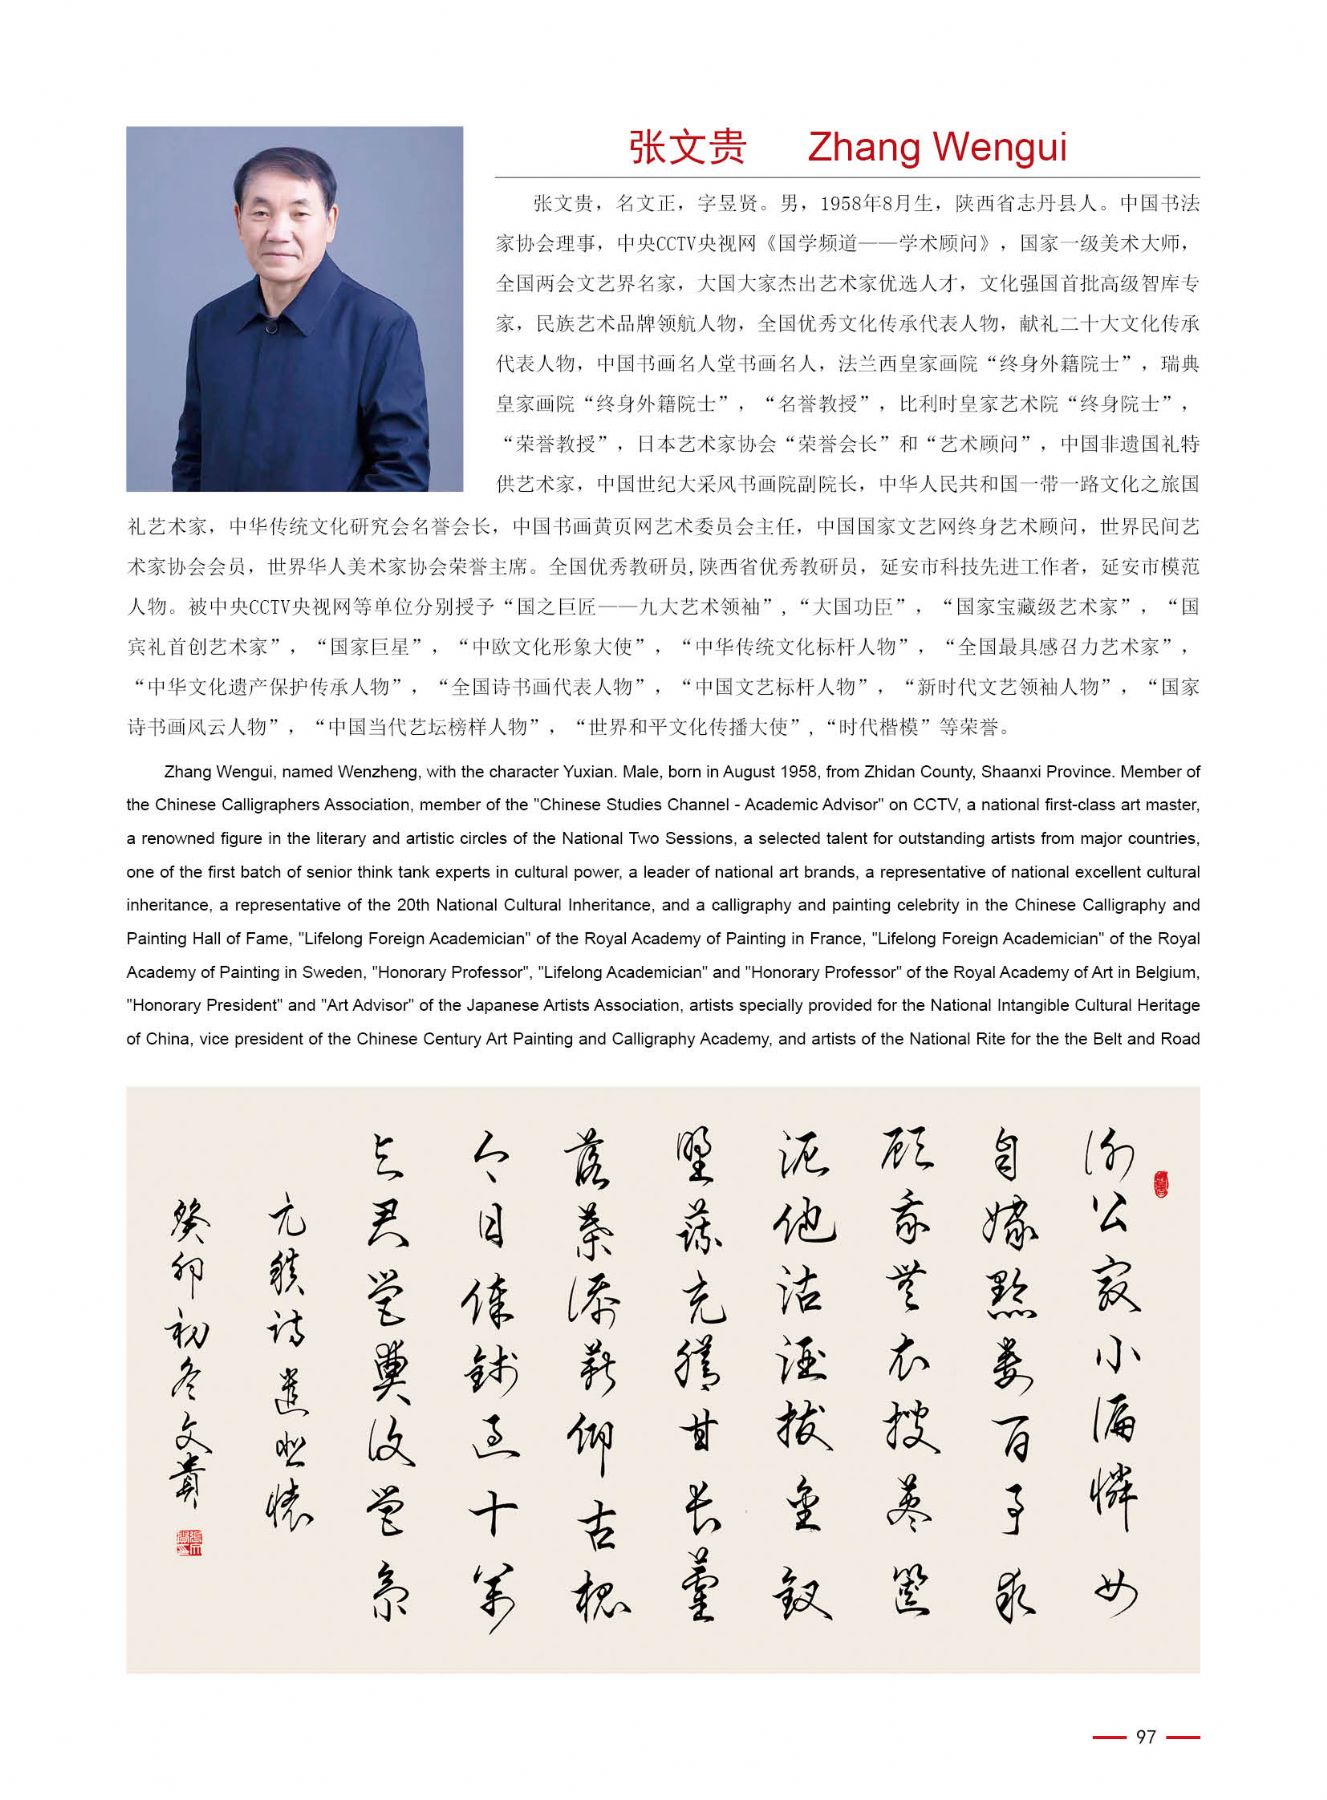 张文贵 Zhang Wengui
张文贵，名文正，字昱贤。男，1958年8月生，陕西省志丹县人。中国书法
家协会理事，中央CCTV央视网《国学频道——学术顾问》，国家一级美术大师，
全国两会文艺界名家，大国大家杰出艺术家优选人才，文化强国首批高级智库专
家，民族艺术品牌领航人物，全国优秀文化传承代表人物，献礼二十大文化传承
代表人物，中国书画名人堂书画名人，法兰西皇家画院“终身外籍院士”，瑞典
皇家画院“终身外籍院士”，“名誉教授”，比利时皇家艺术院“终身院士”，
“荣誉教授”，日本艺术家协会“荣誉会长”和“艺术顾问”，中国非遗国礼特
供艺术家，中国世纪大采风书画院副院长，中华人民共和国一带一路文化之旅国
礼艺术家，中华传统文化研究会名誉会长，中国书画黄页网艺术委员会主任，中国国家文艺网终身艺术顾问，世界民间艺
术家协会会员，世界华人美术家协会荣誉主席。全国优秀教研员,陕西省优秀教研员，延安市科技先进工作者，延安市模范
人物。被中央CCTV央视网等单位分别授予“国之巨匠——九大艺术领袖”,“大国功臣”，“国家宝藏级艺术家”，“国
宾礼首创艺术家”，“国家巨星”，“中欧文化形象大使”，“中华传统文化标杆人物”，“全国最具感召力艺术家”，
“中华文化遗产保护传承人物”，“全国诗书画代表人物”，“中国文艺标杆人物”，“新时代文艺领袖人物”，“国家
诗书画风云人物”，“中国当代艺坛榜样人物”，“世界和平文化传播大使”,“时代楷模”等荣誉。
Zhang Wengui, named Wenzheng, with the character Yuxian. Male, born in August 1958, from Zhidan County, Shaanxi Province. Member of
the Chinese Calligraphers Association, member of the "Chinese Studies Channel - Academic Advisor" on CCTV, a national first-class art master,
a renowned figure in the literary and artistic circles of the National Two Sessions, a selected talent for outstanding artists from major countries,
one of the first batch of senior think tank experts in cultural power, a leader of national art brands, a representative of national excellent cultural
inheritance, a representative of the 20th National Cultural Inheritance, and a calligraphy and painting celebrity in the Chinese Calligraphy and
Painting Hall of Fame, "Lifelong Foreign Academician" of the Royal Academy of Painting in France, "Lifelong Foreign Academician" of the Royal
Academy of Painting in Sweden, "Honorary Professor", "Lifelong Academician" and "Honorary Professor" of the Royal Academy of Art in Belgium,
"Honorary President" and "Art Advisor" of the Japanese Artists Association, artists specially provided for the National Intangible Cultural Heritage
of China, vice president of the Chinese Century Art Painting and Calligraphy Academy, and artists of the National Rite for the the Belt and Road
謝公最小偏憐女
自嫁黔娄百事乖
顾我無衣搜荩箧
泥他沽酒拔金釵
野蔬充膳甘長藿
落葉添薪仰古槐
今日俸錢过十萬
与君營奠復營齋
元稹詩遣悲懷
癸卯初冬文貴
97